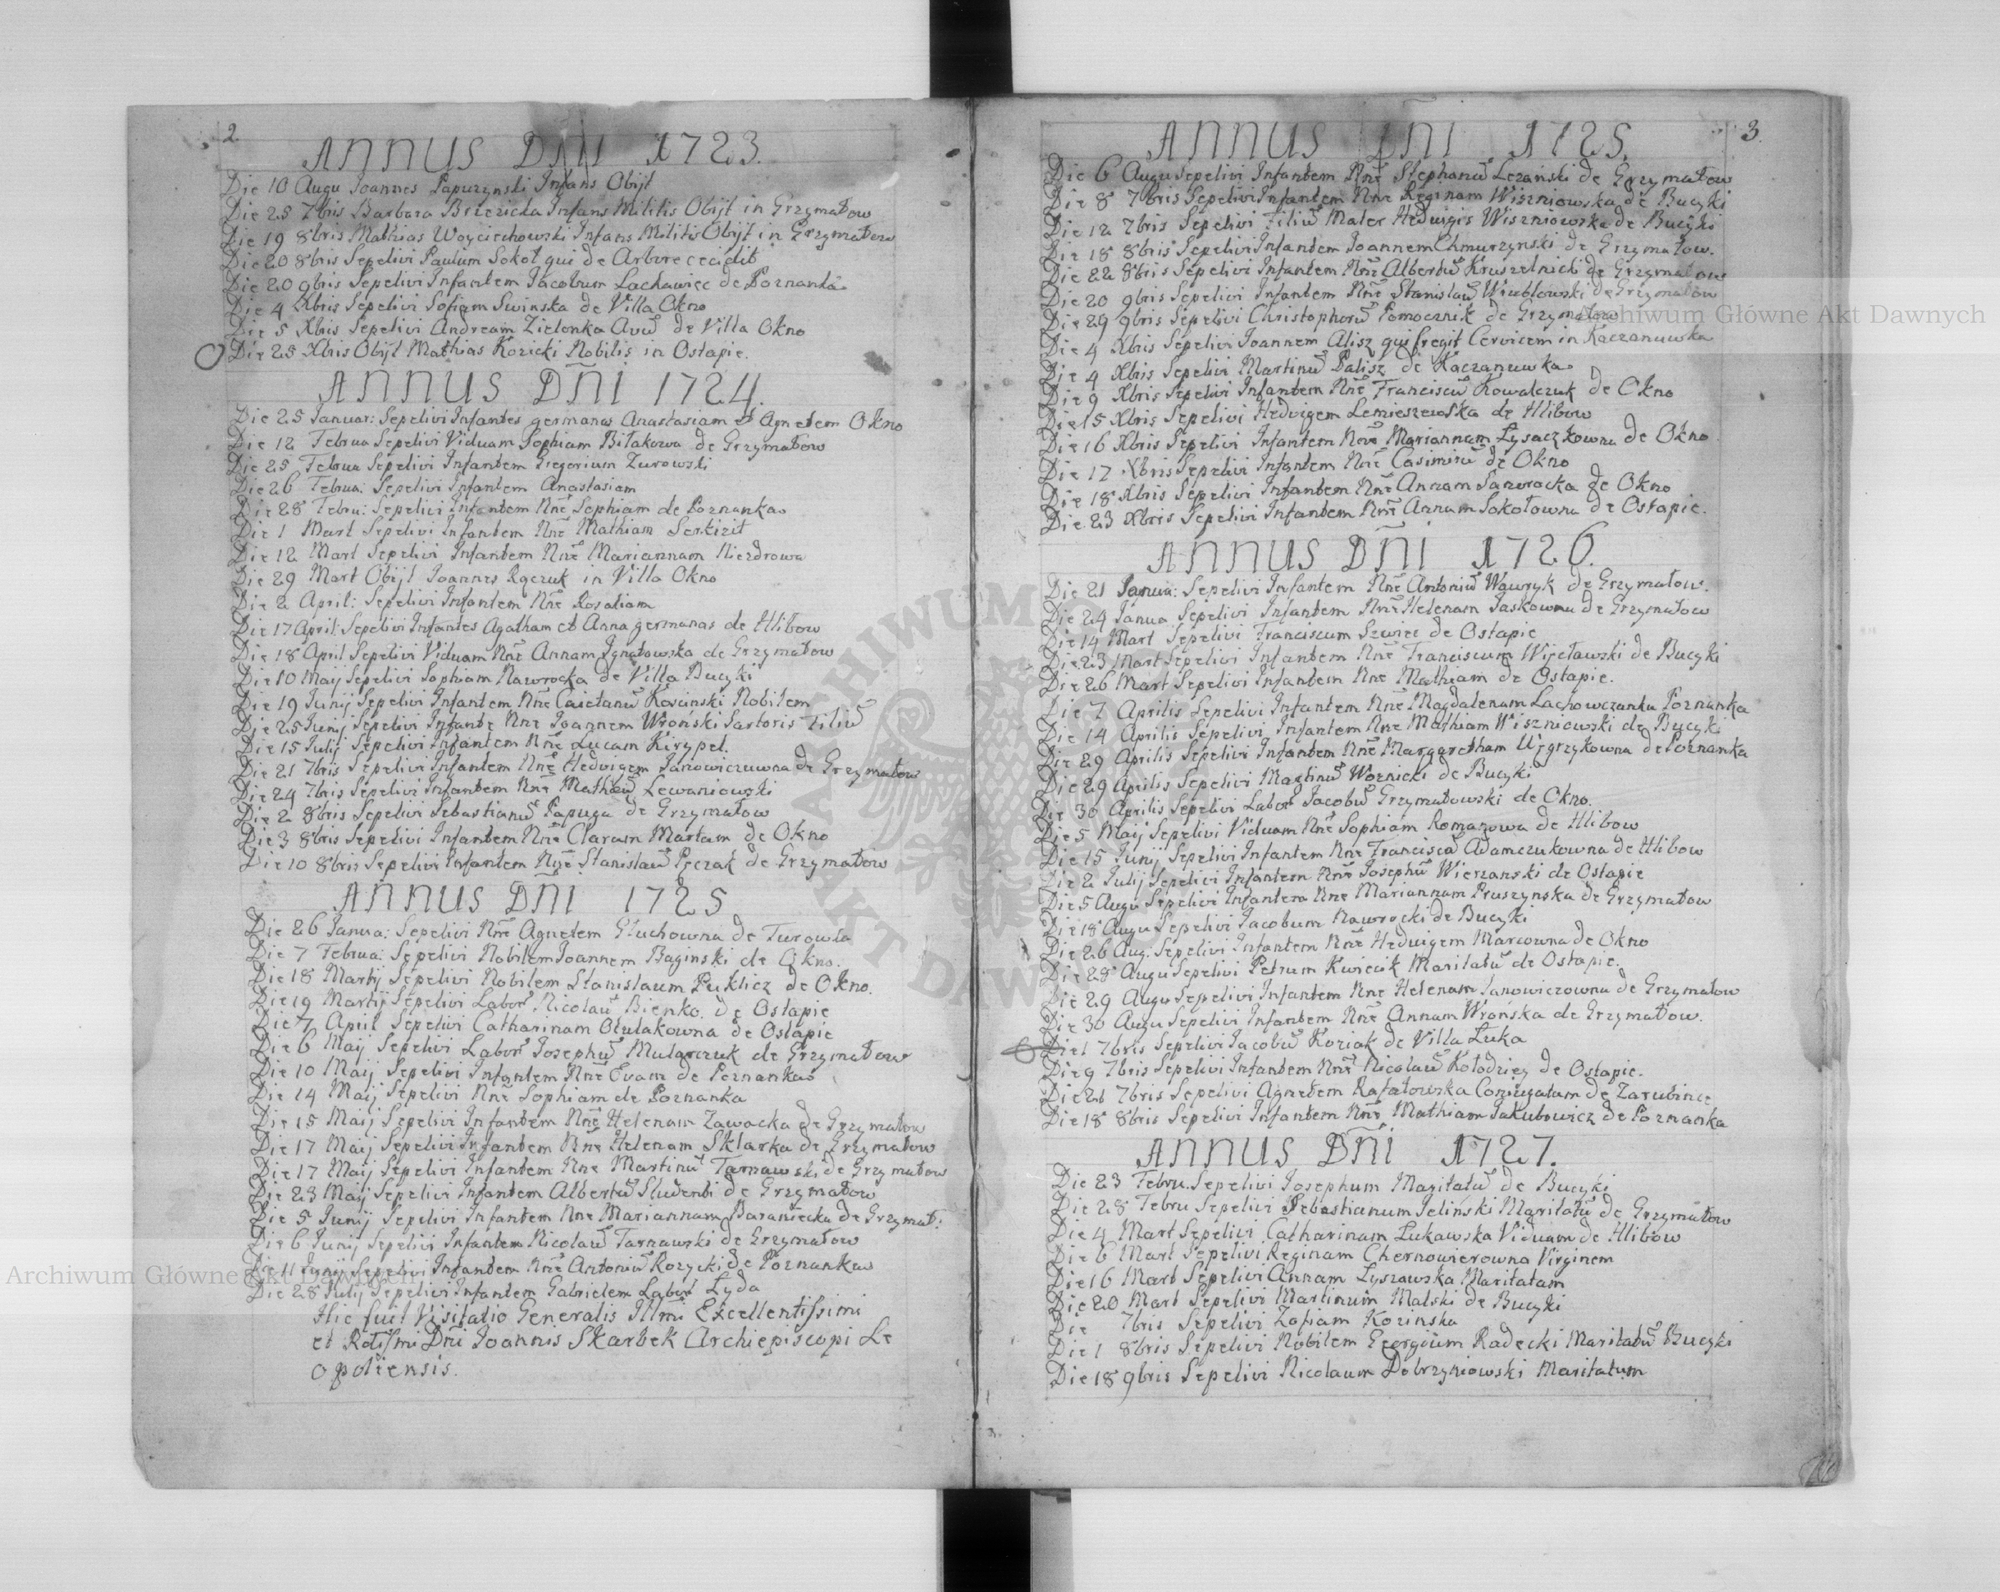 2
ANNUS DÑI 1723.
Die 10 Augu Joannes Papurzynski Infans Obijt
Die 25 7bris Barbara Brzezicka Infans Militis Obijt in Grzymałow
Die 19 8bris Mathias Woyciechowski Infans Militis Obijt in Grzymałow
Die 20 8bris Sepelivi Paulum Sokoł qui de Arbore cecidit
Die 20 9bris Sepelivi Infantem Jacobum Lachawiec de Poznanka
Die 4 Xbris Sepelivi Sofiam Swinska de Villa Okno
Die 5 Xbris Sepelivi Andream Zielonka Avū de Villa Okno
Die 25 Xbris Obijt Mathias Kozicki Nobilis in Ostapie.
ANNUS DÑI 1724.
Die 25 Januar: Sepelivi Infantes germanas Anastasiam et Agnetem Okno
Die 12 Februa Sepelivi Viduam Sophiam Biłakowa de Grzymałow
Die 25 Februa Sepelivi Infantem Gregorium Zurowski
Die 26 Februa: Sepelivi Infantem Anastasiam
Die 28 Febru: Sepelivi Infantem Nñe Sophiam de Poznanka
Die 1 Mart Sepelivi Infantem Nñe Mathiam Serkizit
Die 12 Mart Sepelivi Infantem Nñe Mariannam Niezdrowa
Die 29 Mart Obijt Joannes Rączuk in Villa Okno
Die 2 April: Sepelivi Infantem Nñe Rosaliam
Die 17 April: Sepelivi Infantes Agatham et Anna germanas de Hlibow
Die 18 April Sepelivi Viduam Nñe Annam Ignatowska de Grzymałow
Die 10 Maij Sepelivi Sophiam Nawrocka de Villa Bucyki
Die 19 Junij Sepelivi Infantem Nñe Caietanū Kosinski Nobilem
Die 25 Junij. Sepelivi Infante Nñe Joannem Wronski Sartoris Filiū
Die 15 Julij Sepelivi Infantem Nñe Lucam Kirypel.
Die 21 7bris Sepelivi Infantem Nñe Hedvigem Janowiczuwna de Grzymałow
Die 24 7bris Sepelivi Infantem Nñe Mathæū Lewaniowski
Die 2 8bris Sepelivi Sebastianū Papuga de Grzymałow
Die 3 8bris Sepelivi Infantem Nñe Claram Martam de Okno
Die 10 8bris Sepelivi Infantem Nñe Stanislaū Pęczak de Grzymałow
ANNUS DÑI 1725
Die 26 Janua: Sepelivi Nñe Agnetem Głuchowna de Turowka
Die 7 Februa: Sepelivi Nobilem Joannem Baginski de Okno.
Die 18 Martij Sepelivi Nobilem Stanislaum Puklicz de Okno.
Die 19 Martij Sepelivi Labor Nicolaū Bienko. de Ostapie
Die 7 April Sepelivi Catharinam Otulakowna de Ostapie
Die 6 Maij Sepelivi Labor Josephū Mularczuk de Grzymałow
Die 10 Maij Sepelivi Infantem Nñe Evam de Poznanka
Die 14 Maij Sepelivi Nñe Sophiam de Poznanka
Die 15 Maij Sepelivi Infantem Nñe Helenam Zawacka de Grzymałow
Die 17 Maij Sepelivi Infantem Nñe Helenam Sklarka de Grzymałow
Die 17 Maij Sepelivi Infantem Nñe Martinū Tarnawski de Grzymałow
Die 23 Maij Sepelivi Infantem Albertū Studenti de Grzymałow
Die 5 Junij Sepelivi Infantem Nñe Mariannam Baraniecka de Grzymał:
Die 6 Junij Sepelivi Infantem Nicolaū Tarnawski de Grzymałow
Die 11 Junij Sepelivi Infantem Nñe Antoniū Rozycki de Poznanka
Die 28 Julij Sepelivi Infantem Gabrielem Labor Lyda
Hic fuit Visitatio Generalis Illmi Excellentissimi
et Rdissmi Dñi Joannis Skarbek Archiepiscopi Le
opoliensis.
3
ANNUS DNI 1725.
Die 6 Augu Sepelivi Infantem Nñe Stephanū Lezanski de Grzymałow
Die 8 7bris Sepelivi Infantem Nñe Reginam Wiszniowska de Bucyki
Die 12 7bris Sepelivi Filiū Mater Hedvigis Wiszniowska de Bucyki
Die 18 8bris Sepelivi Infantem Joannem Chmurzynski de Grzymałow.
Die 22 8bris Sepelivi Infantem Nñe Albertū Kruszelnicki de Grzymałow
Die 20 9bris Sepelivi Infantem Nñe Stanislaū Wrublowski de Grzymałow
Die 29 9bris Sepelivi Christophorū Pomocznik de Grzymałow
Die 4 Xbris Sepelivi Joannem Alisz qui fregit Cervicem in Kaczanuwka
Die 4 Xbris Sepelivi Martinū Palisz de Kaczanuwka
Die 9 Xbris Sepelivi Infantem Nñe Franciscū Kowalczuk de Okno
Die 15 Xbris Sepelivi Hedvigem Lemieszewska de Hlibow
Die 16 Xbris Sepelivi Infantem Nñe Mariannam Łysaczkowna de Okno
Die 17 Xbris Sepelivi Infantem Nñe Casimirū de Okno
Die 18 Xbris Sepelivi Infantem Nñe Annam Saworacka de Okno
Die 23 Xbris Sepelivi Infantem Nñe Annam Sokołowna de Ostapie.
ANNUS DÑI 1726.
Die 21 Janua: Sepelivi Infantem Nñe Antoniū Wawryk de Grzymałow.
Die 24 Janua Sepelivi Infantem Nñe Helenam Jaskowna de Grzymałow
Die 14 Mart Sepelivi Franciscum Szwiec de Ostapie
Die 23 Mart Sepelivi Infantem Nñe Franciscum Więcławski de Bucyki
Die 26 Mart Sepelivi Infantem Nñe Mathiam de Ostapie.
Die 7 Aprilis Sepelivi Infantem Nñe Magdalenam Lachowczanka Poznanka
Die 14 Aprilis Sepelivi Infantem Nñe Mathiam Wiszniowski de Bucyki
Die 29 Aprilis Sepelivi Infantem Nñe Margaretham Węgrzykowna de Poznanka
Die 29 Aprilis Sepelivi Martinū Woznicki de Bucyki
Die 30 Aprilis Sepelivi Labor Jacobū Grzymałowski de Okno.
Die 5 Maij Sepelivi Viduam Nñe Sophiam Romanowa de Hlibow
Die 15 Junij Sepelivi Infantem Nñe Franciscā Adamczukowna de Hlibow
Die 2 Julij Sepelivi Infantem Nñe Josephū Wierzanski de Ostapie
Die 5 Augu Sepelivi Infantem Nñe Mariannam Pruszynska de Grzymałow
Die 18 Augu Sepelivi Jacobum Nawrocki de Bucyki
Die 26 Aug. Sepelivi Infantem Nñe Hedvigem Marcowna de Okno
Die 28 Augu Sepelivi Petrum Kwiecik Maritatū de Ostapie.
Die 29 Augu Sepelivi Infantem Nñe Helenam Janowiczowna de Grzymałow
Die 30 Augu Sepelivi Infantem Nñe Annam Wronska de Grzymałow.
Die 1 7bris Sepelivi Jacobū Koziak de Villa Łuka
Die 9 7bris Sepelivi Infantem Nñe Nicolaū Kołodziey de Ostapie.
Die 21 7bris Sepelivi Agnetem Rafałowska Coniugatam de Zarubince
Die 18 8bris Sepelivi Infantem Nñe Mathiam Jakubowicz de Poznanka
ANNUS DÑI 1727.
Die 23 Febru. Sepelivi Josephum Maritatū de Bucyki
Die 28 Febru Sepelivi Sebastianum Jelinski Maritatū de Grzymałow
Die 4 Mart Sepelivi Catharinam Łukawska Viduam de Hlibow
Die 6 Mart Sepelivi Reginam Chernowierowna Virginem
Die 16 Mart Sepelivi Annam Łyszawska Maritatam
Die 20 Mart Sepelivi Martinum Malski de Bucyki
Die 7bris Sepelivi Zofiam Kozinska
Die 1 8bris Sepelivi Nobilem Georgium Radecki Maritatū Bucyki
Die 18 9bris Sepelivi Nicolaum Dobrzyniowski Maritatum
Archiwum Główne Akt Dawnych
Archiwum Główne Akt Dawnych
ARCHIWUM
AKT DAW